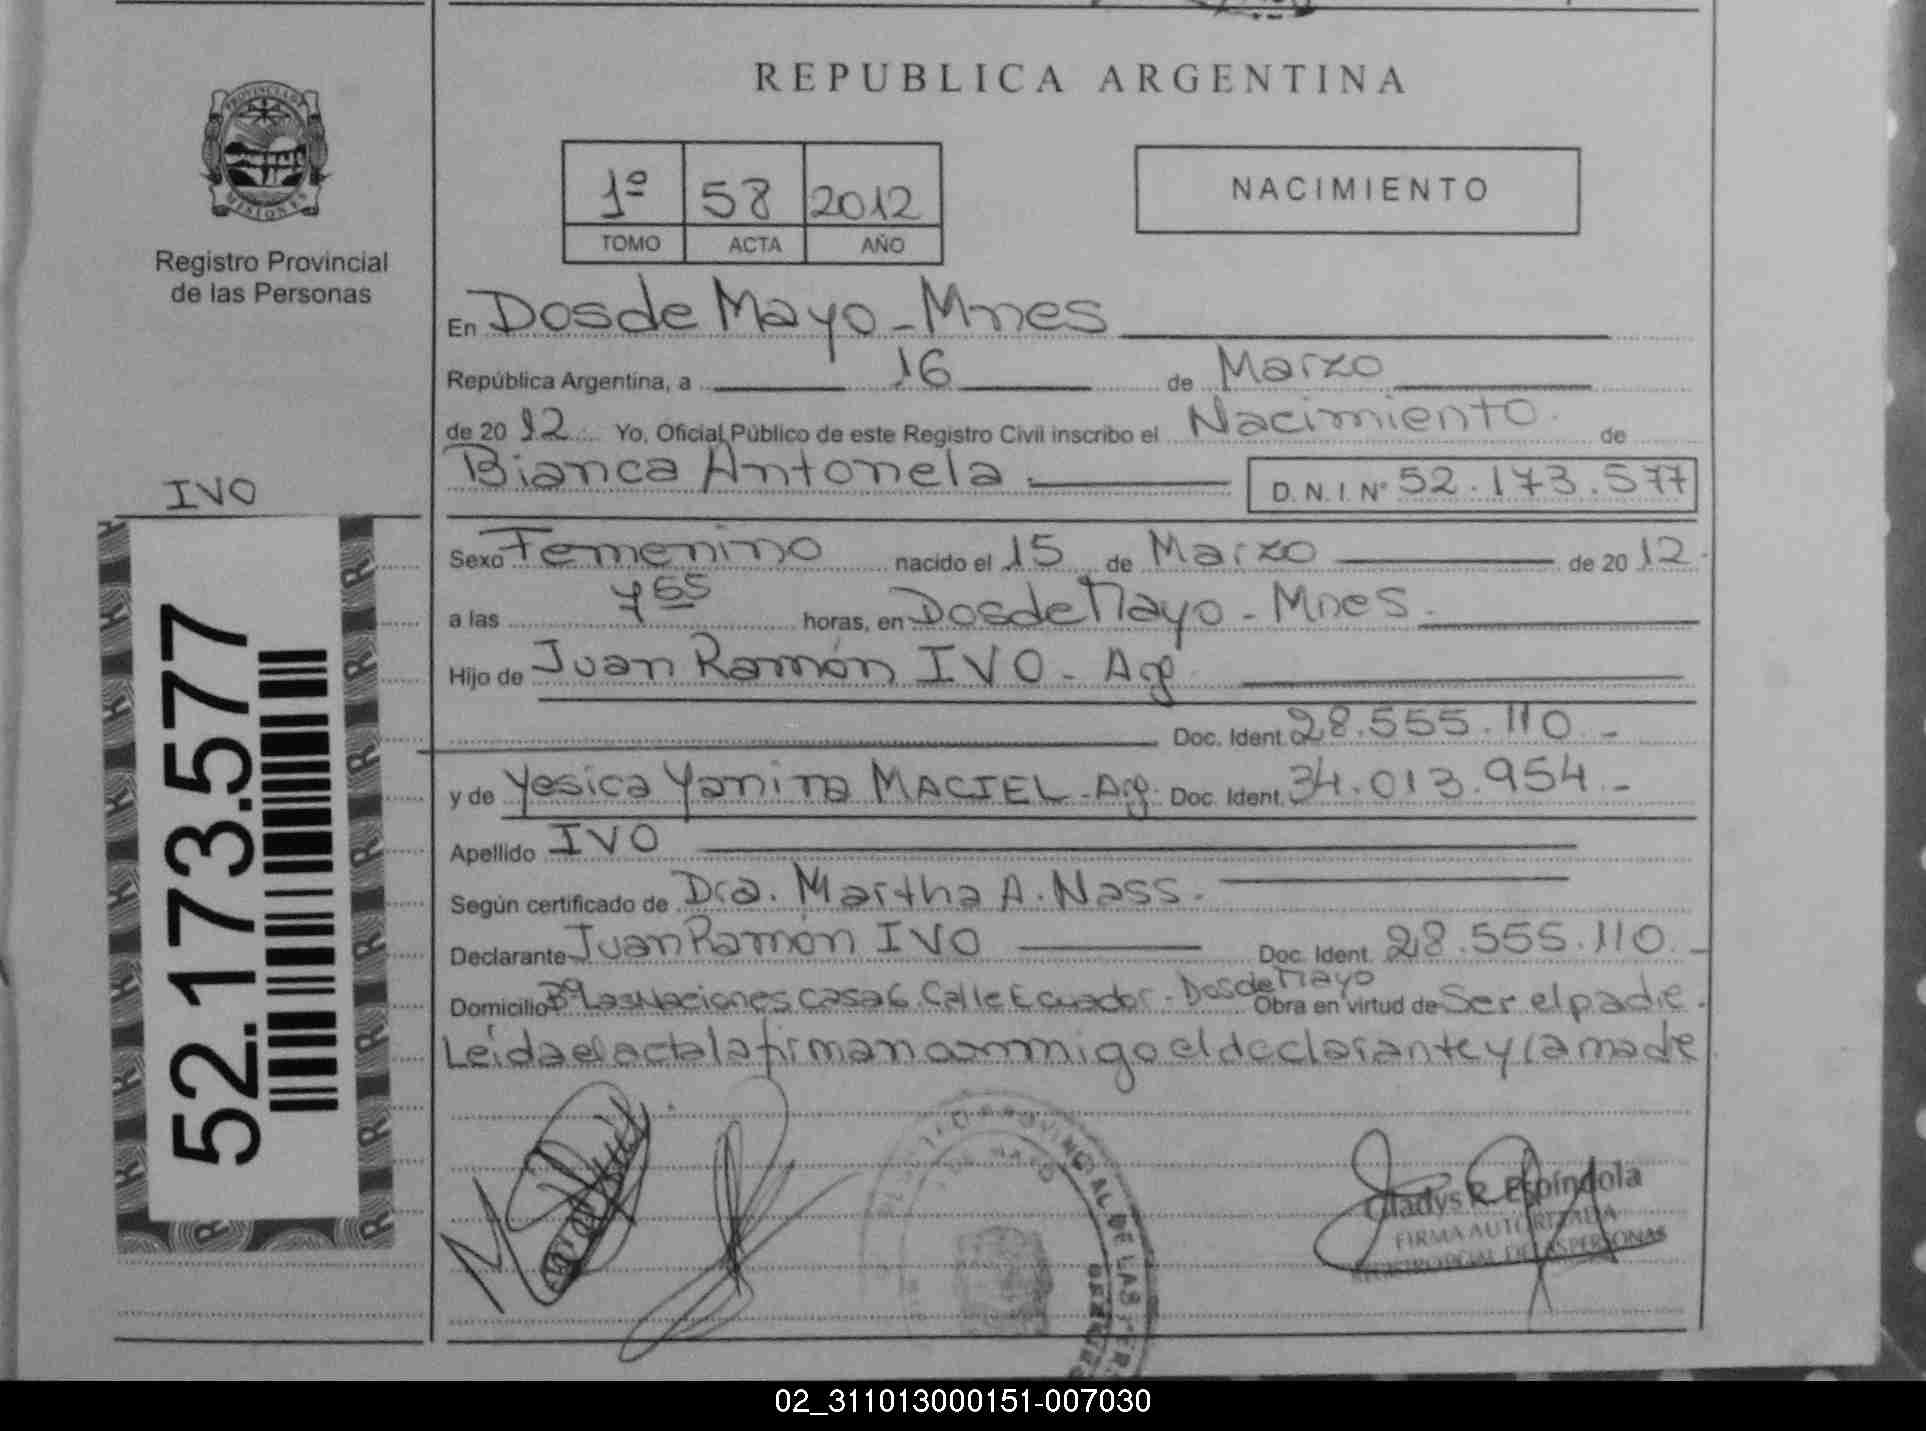 REPUBLICA ARGENTINA
PROVINCIA DE
MISIONES
Registro Provincial
de las Personas
1º 58 2012
TOMO ACTA AÑO
NACIMIENTO
En Dos de Mayo - Mnes
República Argentina, a 16 de Marzo
de 2012 Yo, Oficial Público de este Registro Civil inscribo el Nacimiento de
Bianca Antonela D.N.I. Nº 52.173.577
IVO
52.173.577
Sexo Femenino nacido el 15 de Marzo de 2012.
a las 7 55 horas, en Dos de Mayo - Mnes.
Hijo de Juan Ramón IVO - Arg.
Doc. Ident. 28.555.110.-
y de Yesica Yanina MACIEL - Arg. Doc. Ident. 34.013.954.-
Apellido IVO
Según certificado de Dra. Martha A. Nass.
Declarante Juan Ramón IVO Doc. Ident. 28.555.110.-
Domicilio Bº Las Naciones casa 6. Calle Ecuador - Dos de Mayo Obra en virtud de Ser el padre.
Leída el acta la firman conmigo el declarante y la madre
PROVINCIAL DE LAS PER
Gladys R. Espíndola
FIRMA AUTORIZADA
REGISTRO PCIAL. DE LAS PERSONAS
02_311013000151-007030